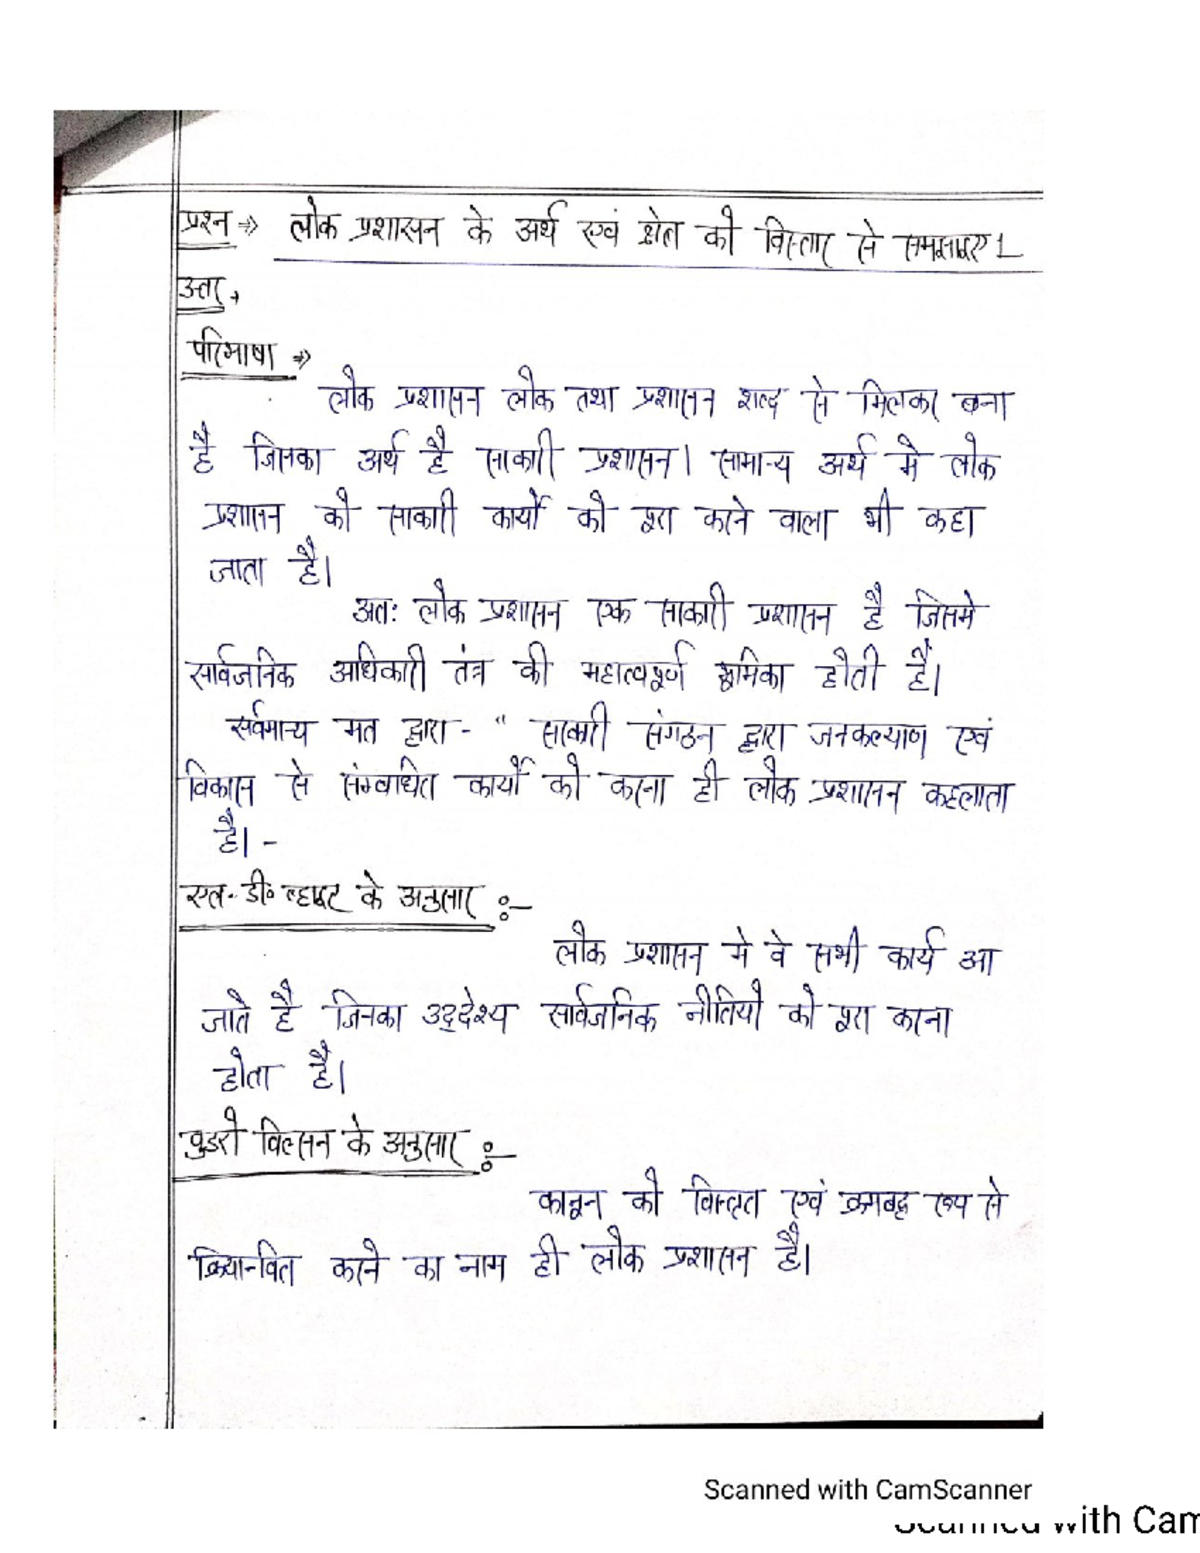 प्रश्न ⇒ लोक प्रशासन के अर्थ एवं क्षेत्र को विस्तार से समझाइए।
उत्तर →
परिभाषा ⇒
लोक प्रशासन लोक तथा प्रशासन शब्द से मिलकर बना
है जिसका अर्थ है सरकारी प्रशासन। सामान्य अर्थ मे लोक
प्रशासन को सरकारी कार्यों को पूरा करने वाला भी कहा
जाता है।
अतः लोक प्रशासन एक सरकारी प्रशासन है जिसमे
सार्वजनिक अधिकारी तंत्र की महत्वपूर्ण भूमिका होती है।
सर्वमान्य मत द्वारा - " सरकारी संगठन द्वारा जनकल्याण एवं
विकास से संम्बधित कार्यों को करना ही लोक प्रशासन कहलाता
है। -
एल. डी॰ व्हाइट के अनुसार :-
लोक प्रशासन मे वे सभी कार्य आ
जाते है जिनका उद्देश्य सार्वजनिक नीतियो को पूरा करना
होता है।
वुडरो विल्सन के अनुसार :-
कानून को विस्तृत एवं क्रमबद्ध रूप से
क्रियान्वित करने का नाम ही लोक प्रशासन है।
Scanned with CamScanner
Scanned with Cam